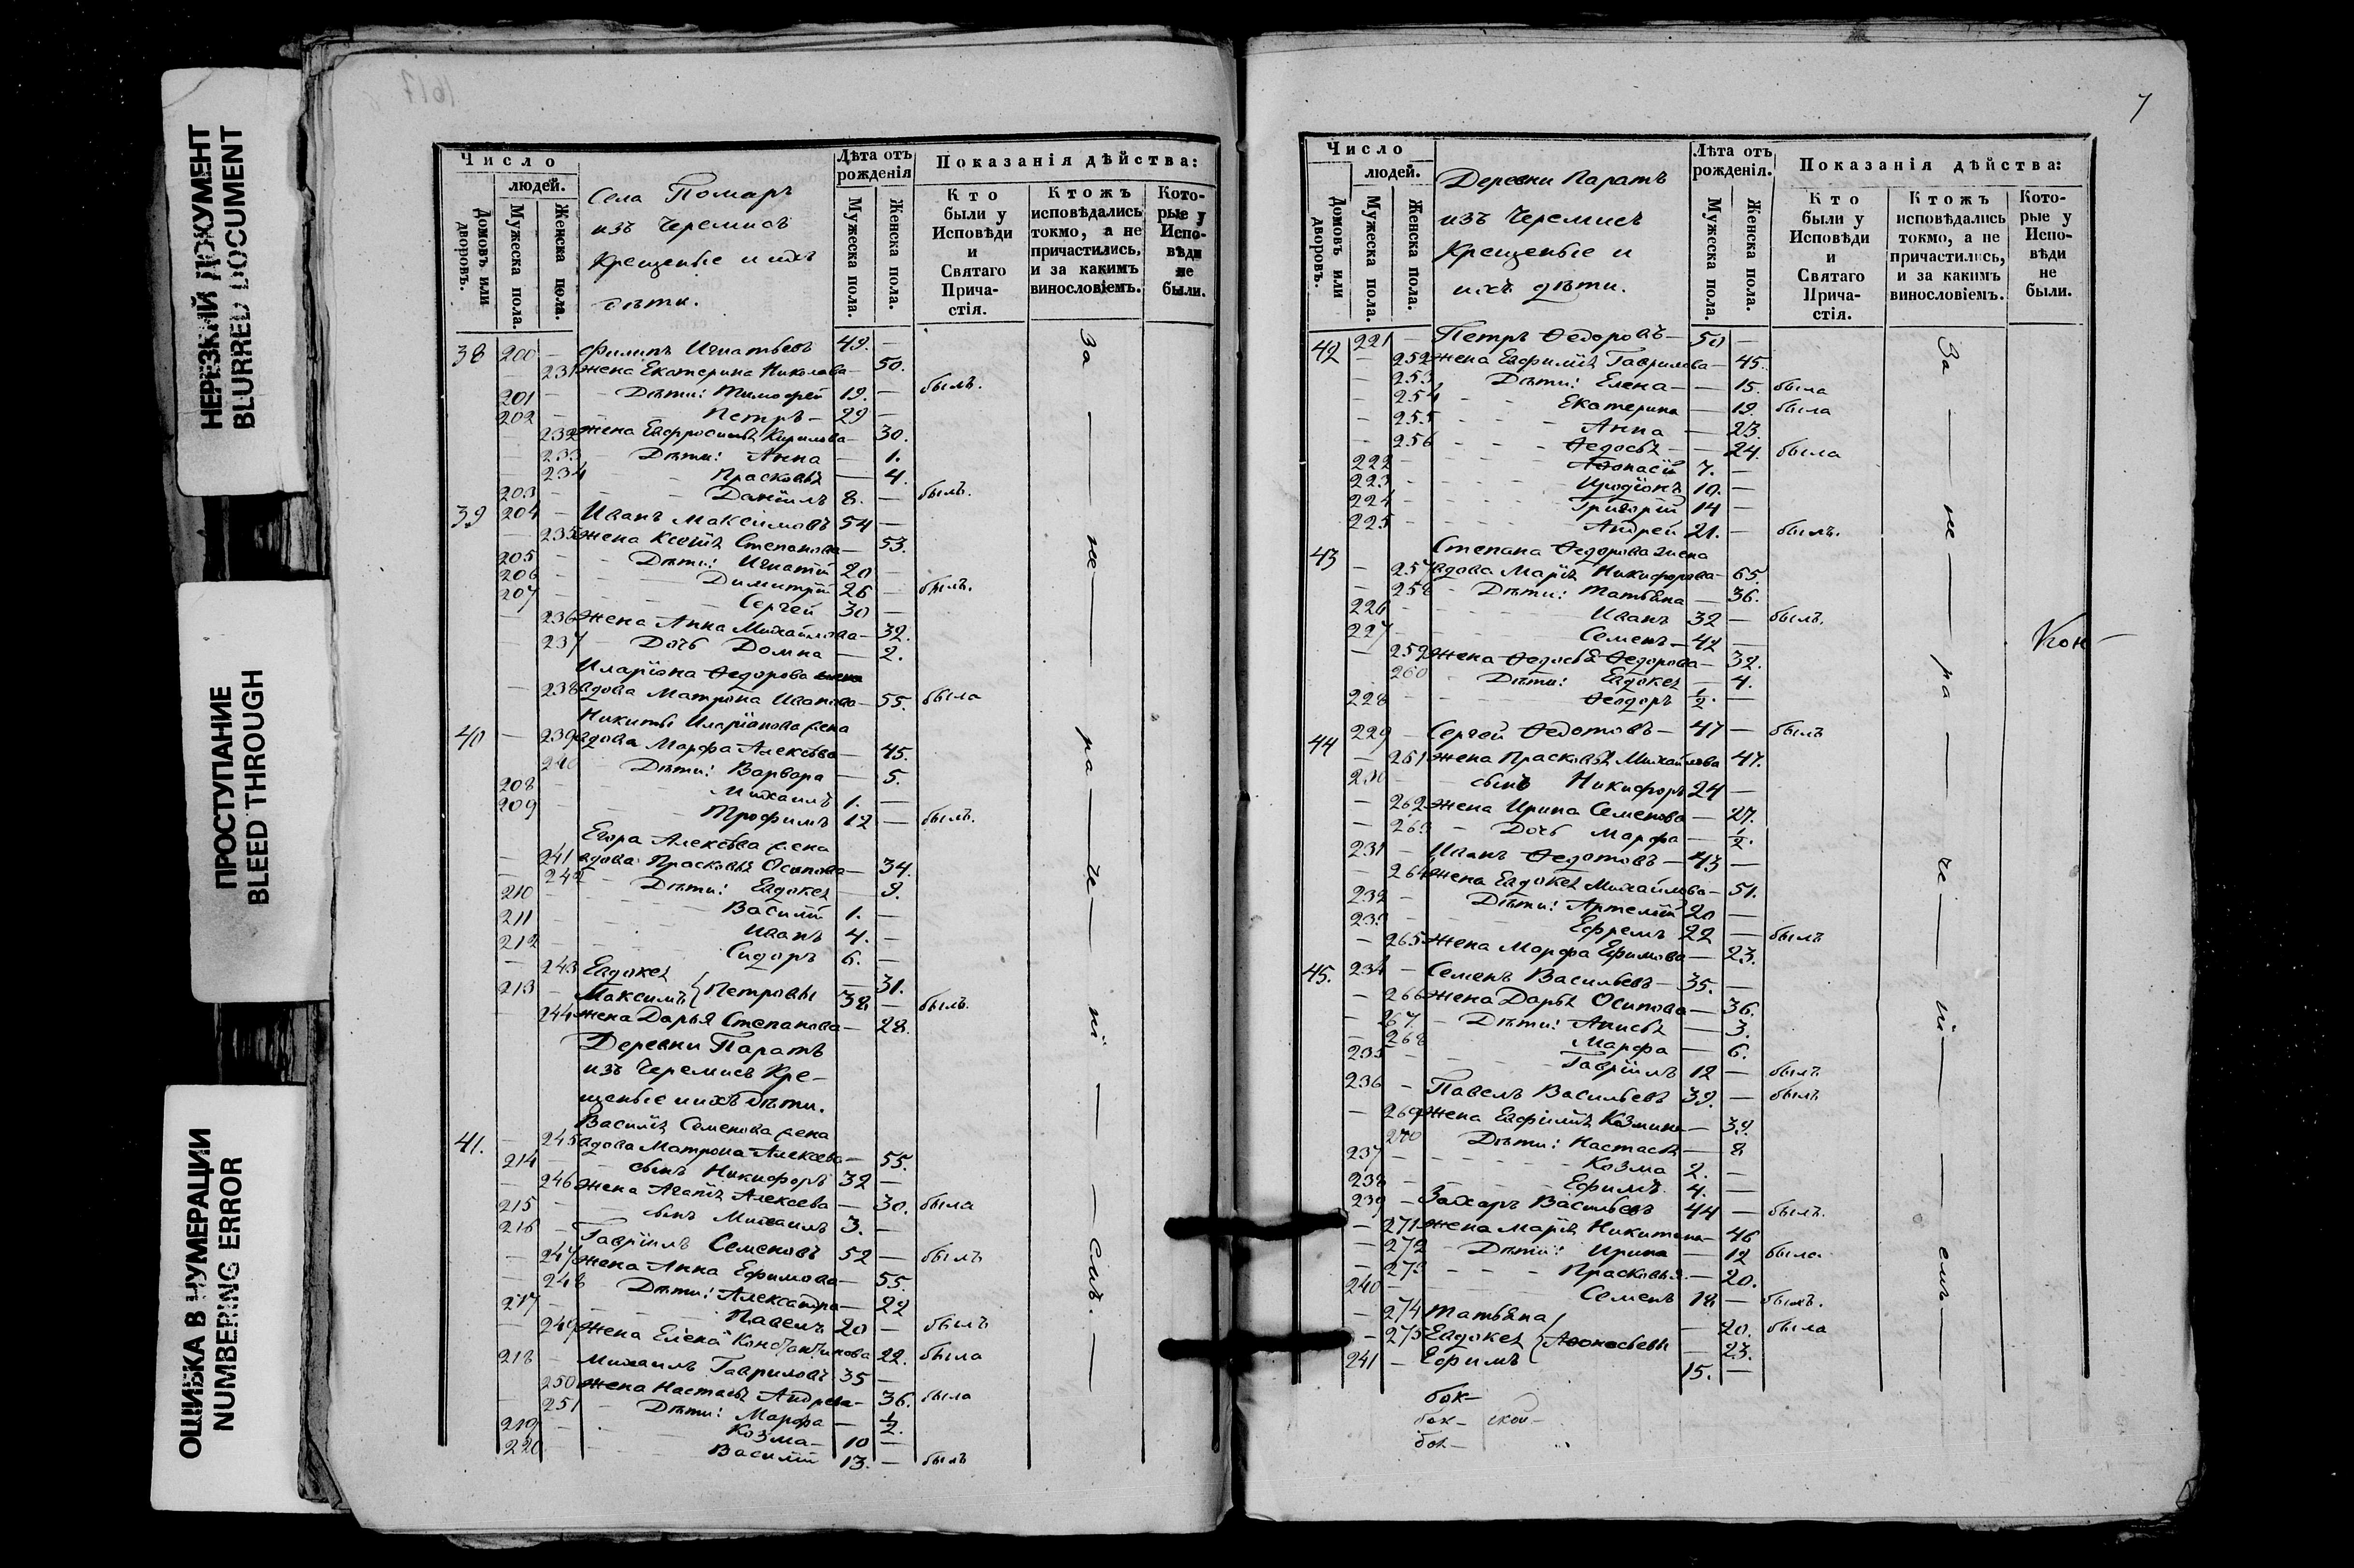 НЕРЕЗКИЙ ДОКУМЕНТ
BLURRED DOCUMENT
ПРОСТУПАНИЕ
BLEED THROUGH
ОШИБКА В НУМЕРАЦИИ
NUMBERING ERROR
Число
людей.
Домовъ или дворовъ.
Мужеска пола.
Женска пола.
Села Помаръ
изъ Черемисъ
Крещеные и ихъ
дѣти.
Лѣта отъ рожденія
Мужеска пола.
Женска пола.
Показанія дѣйства:
Кто были у Исповѣди и Святаго Прича-стія.
Ктожъ исповѣдались токмо, а не причастились, и за какимъ винословіемъ.
Кото-рые у Испо-вѣди не были.
38 200 — Филипъ Игнатьевъ 49. —
— 231 жена Екатерина Николаева — 50.
201 — Дѣти: Тимофей 19. — былъ.
202 — Петръ — 29 —
— 232 жена Евфросинья Кирилова — 30.
— 233 — Дѣти: Анна — 1.
— 234 Прасковья — 4.
203 — Данiилъ 8. — былъ.
39 204 — Иванъ Максимовъ 54 —
— 235 жена Ксенiя Степанова — 53.
205 — Дѣти: Игнатiй 20 —
206 — Димитрiй 26 — былъ.
207 — Сергей 30 —
— 236 жена Анна Михайлова — 32.
— 237 Дочь Домна — 2.
Иларiона Ѳедорова жена
— 238 вдова Матрона Иванова — 55. была
Никиты Иларiонова жена
40 — 239 вдова Марфа Алексѣева — 45.
240 Дѣти: Варвара — 5.
208 — Михаилъ 1. —
209 — Трофимъ 12 — былъ.
Егора Алексѣева жена
— 241 вдова Прасковья Осипова — 34.
— 242 — Дѣти: Евдокея — 9.
210 — Василiй 1. —
211 — Иванъ 4. —
212 — Сидоръ 6. —
— 243 Евдокея } Петровы — 31.
213 — Максимъ 38 — былъ.
— 244 жена Дарья Степанова — 28.
Деревни Паратъ
изъ Черемисъ Кре-
щеные и ихъ дѣти.
Василiя Семенова жена
41. — 245 вдова Матрона Алексѣева — 55.
214 — сынъ Никифоръ 32 —
— 246 жена Агапiя Алексѣева — 30. была
215 — сынъ Михаилъ 3. —
216 — Гаврiилъ Семеновъ 52 — былъ
— 247 жена Анна Ефимова — 55.
— 248 — Дѣти: Александра — 22
217 — Павелъ 20 — былъ
— 249 жена Елена Константинова 22. была
218 — Михаилъ Гавриловъ 35 —
— 250 жена Настасья Андреева — 36. была
— 251 — Дѣти: Марфа — ½.
219 — Козма — 10 —
220 — Василiй 13. — былъ
За — не — ра — че — нi — емъ. —
7
Число
людей.
Домовъ или дворовъ.
Мужеска пола.
Женска пола.
Деревни Паратъ
изъ Черемисъ
Крещеные и
ихъ дѣти.
Лѣта отъ рожденія.
Мужеска пола.
Женска пола.
Показанія дѣйства:
Кто были у Исповѣди и Святаго Прича-стія.
Ктожъ исповѣдались токмо, а не причастились, и за какимъ винословіемъ.
Кото-рые у Испо-вѣди не были.
42 221 — Петръ Ѳедоровъ — 50 —
— 252 жена Евфимiя Гаврилова — 45.
— 253 Дѣти: Елена — 15. была
— 254 Екатерина — 19. была
— 255 Анна — 23.
— 256 Ѳедосья — 24. была
222 — Аѳонасiй 7. —
223 — Иродiонъ 10. —
224 — Григорiй 14 —
225 — Андрей 21. — былъ.
Степана Ѳедорова жена
43 — 257 вдова Марiя Никифорова — 65.
— 258 — Дѣти: Татьяна — 36.
226 — Иванъ 32 — былъ.
227 — Семенъ — 42 —
— 259 жена Ѳедосья Ѳедорова — 32.
260 — Дѣти: Евдокея — 4.
228 — Ѳеодоръ ½. —
44 229 — Сергей Ѳедотовъ — 47 — былъ
— 261 жена Прасковья Михайлова 47.
230 — сынъ Никифоръ 24 —
— 262 жена Ирина Семенова — 27.
— 263 — Дочь Марфа — ½.
231 — Иванъ Ѳедотовъ — 43 —
— 264 жена Евдокея Михайлова — 51.
232 — Дѣти: Артемiй 20 —
233 — Ефремъ 22 — былъ
— 265 жена Марфа Ефимова — 23.
45. 234 — Семенъ Васильевъ — 35. —
— 266 жена Дарья Осипова — 36.
— 267. — Дѣти: Анисья — 3.
— 268 Марфа — 6.
235 — Гаврiилъ 12 — былъ
236 — Павелъ Васильевъ 39. — былъ
— 269 жена Евфимiя Козмина — 39.
270 Дѣти: Настасья — 8
237 — Козма 2. —
238 — Ефимъ 4. —
239 — Захаръ Васильевъ 44 — былъ.
— 271 жена Марiя Никитина — 46
— 272 — Дѣти: Ирина — 12 была
— 273 Прасковья — 20.
240 — Семенъ 18. — былъ.
— 274 Татьяна — 20. была
— 275 Евдокея } Аѳонасьевы — 23.
241 — Ефимъ 15. —
За — не — ра — че — нi — емъ —